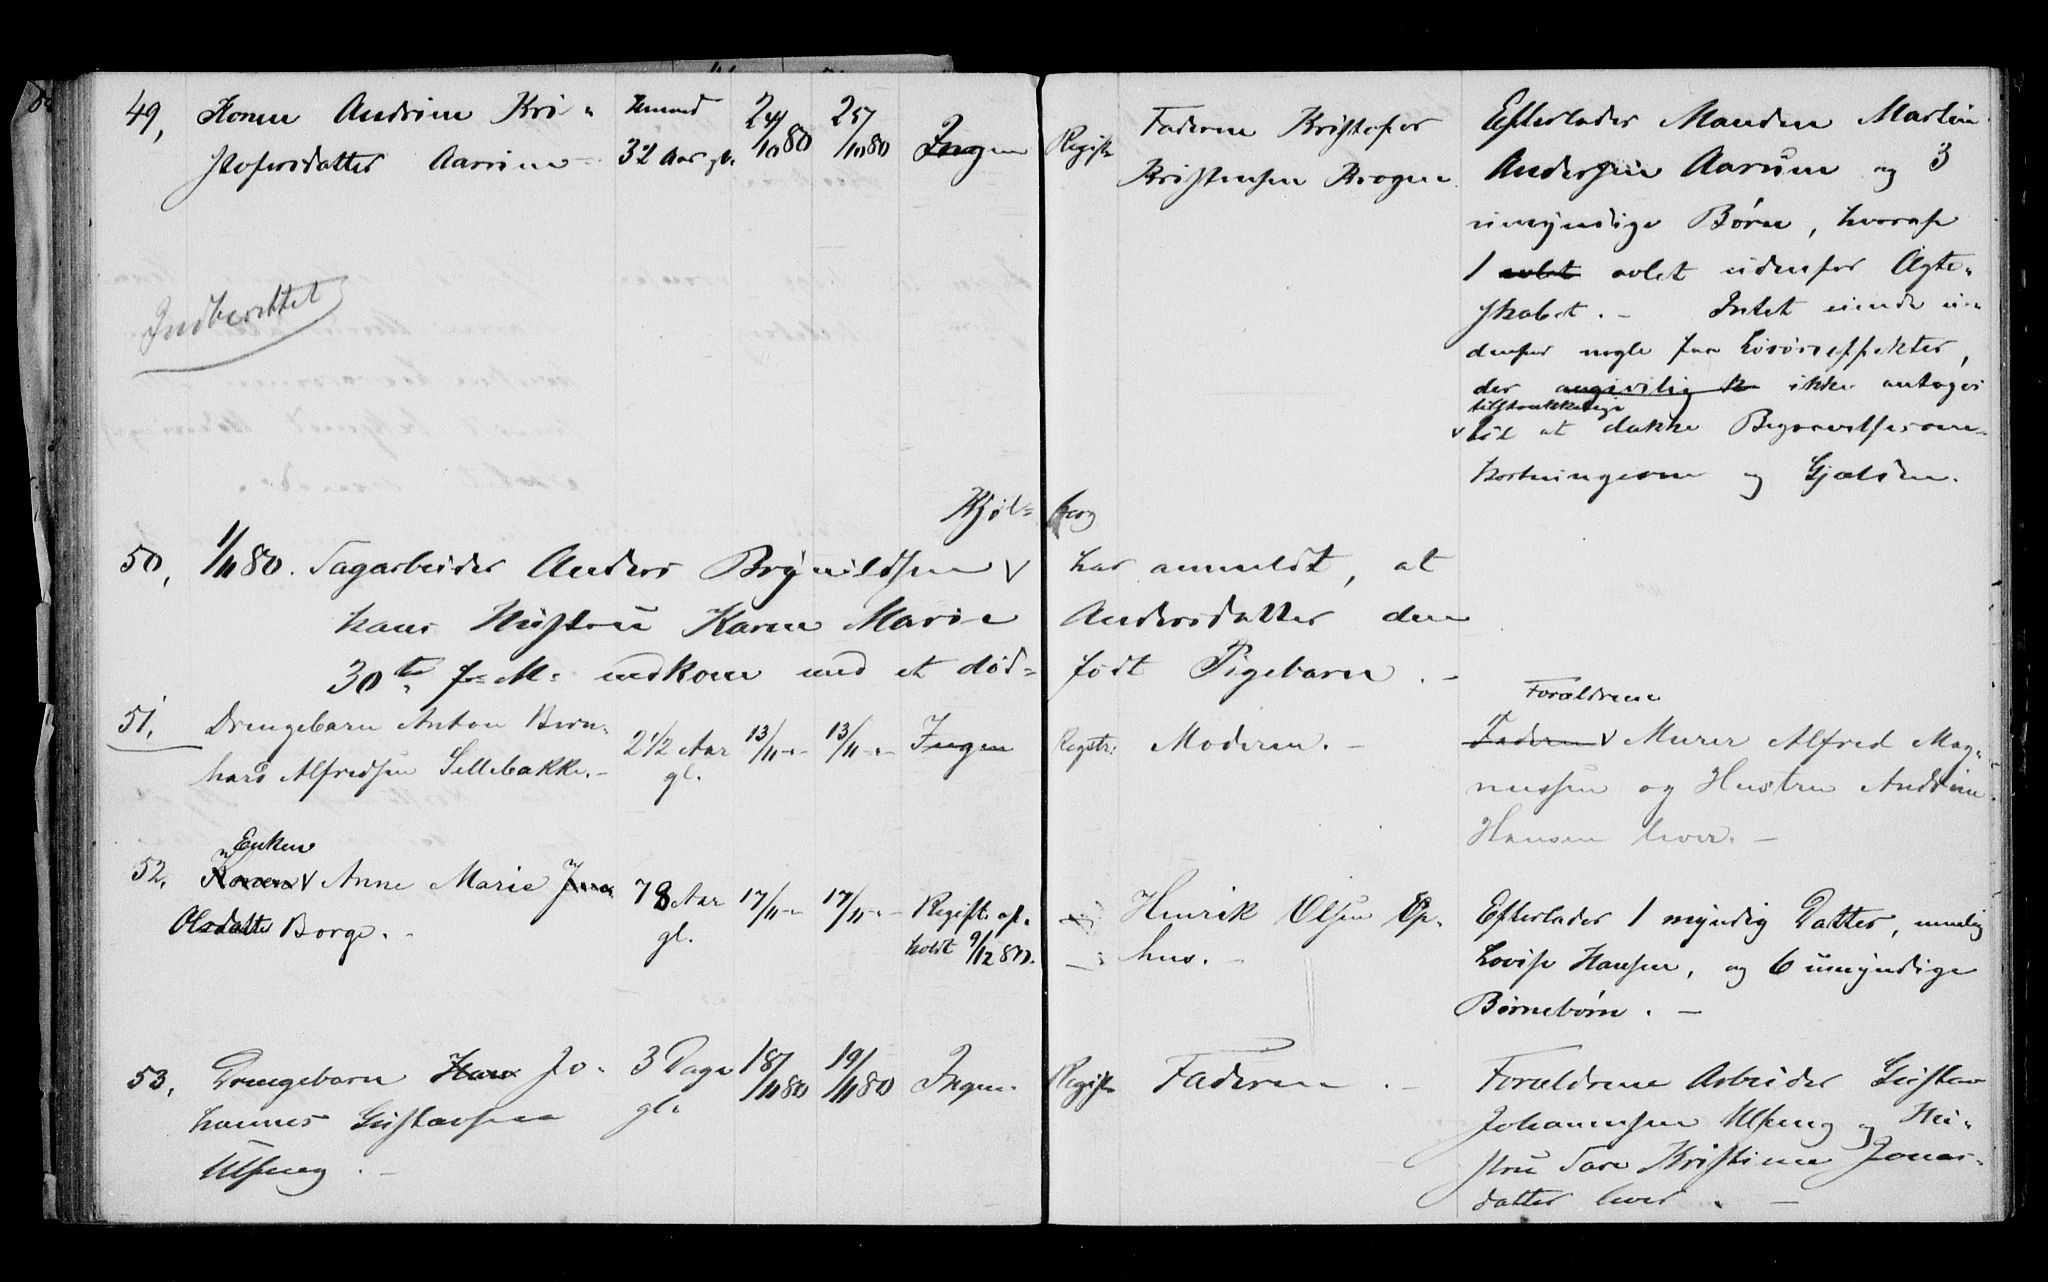 49, Konen Andrine Kri-
stofersdatter Aarum
32 Aar gl.
24/10 80
25/10 80
Ingen
Indberettet
Registr.
Faderen Kristofer
Kristensen Krogen
Efterlader Manden Martin
Andersen Aarum og 3
umyndige Børn, hvoraf
1 avlet avlet udenfor Ægte-
skabet. - Intet eiende u-
denfor nogle faa Løsøreeffekter,
der angivelig ikke antages
tilstrækkelige
til at dække Begravelsesom-
kostningerne og Gjælden.
Kjøl-berg
50, 1/11 80. Sagarbeider Anders Brynildsen har anmeldt, at
hans Hustru Karen Marie Andersdatter den
30te f. M. nedkom med et død- født Pigebarn. -
51. Drengebarn Anton Bern-
hard Alfredsen Sellebakke. -
2 1/2 Aar
gl.
13/11 -
13/11 -
Ingen
Registr:
Moderen. -
Forældrene
Faderen Murer Alfred Mag-
nussen og Hustru Andrine
Hansen lever. -
52. Enken
Konen Anne Marie
Olsdatter Borge. -
78 Aar
gl.
17/11 -
17/11 -
Registr. af-
holdt 9/12 80.
Henrik Olsen Op-
hus. -
Efterlader 1 myndig Datter, nemlig
Lovise Hansen, og 6 umyndige
Børnebørn. -
53, Drengebarn Hans Jo-
hannes Gustavsen
Ulfeng. -
3 Dage
gl.
18/11 80
19/11 80
Ingen.
Registr.
Faderen. -
Forældrene Arbeider Gustav
Johannesen Ulfeng og Hu-
stru Sara Kristine Jonas-
datter lever. -